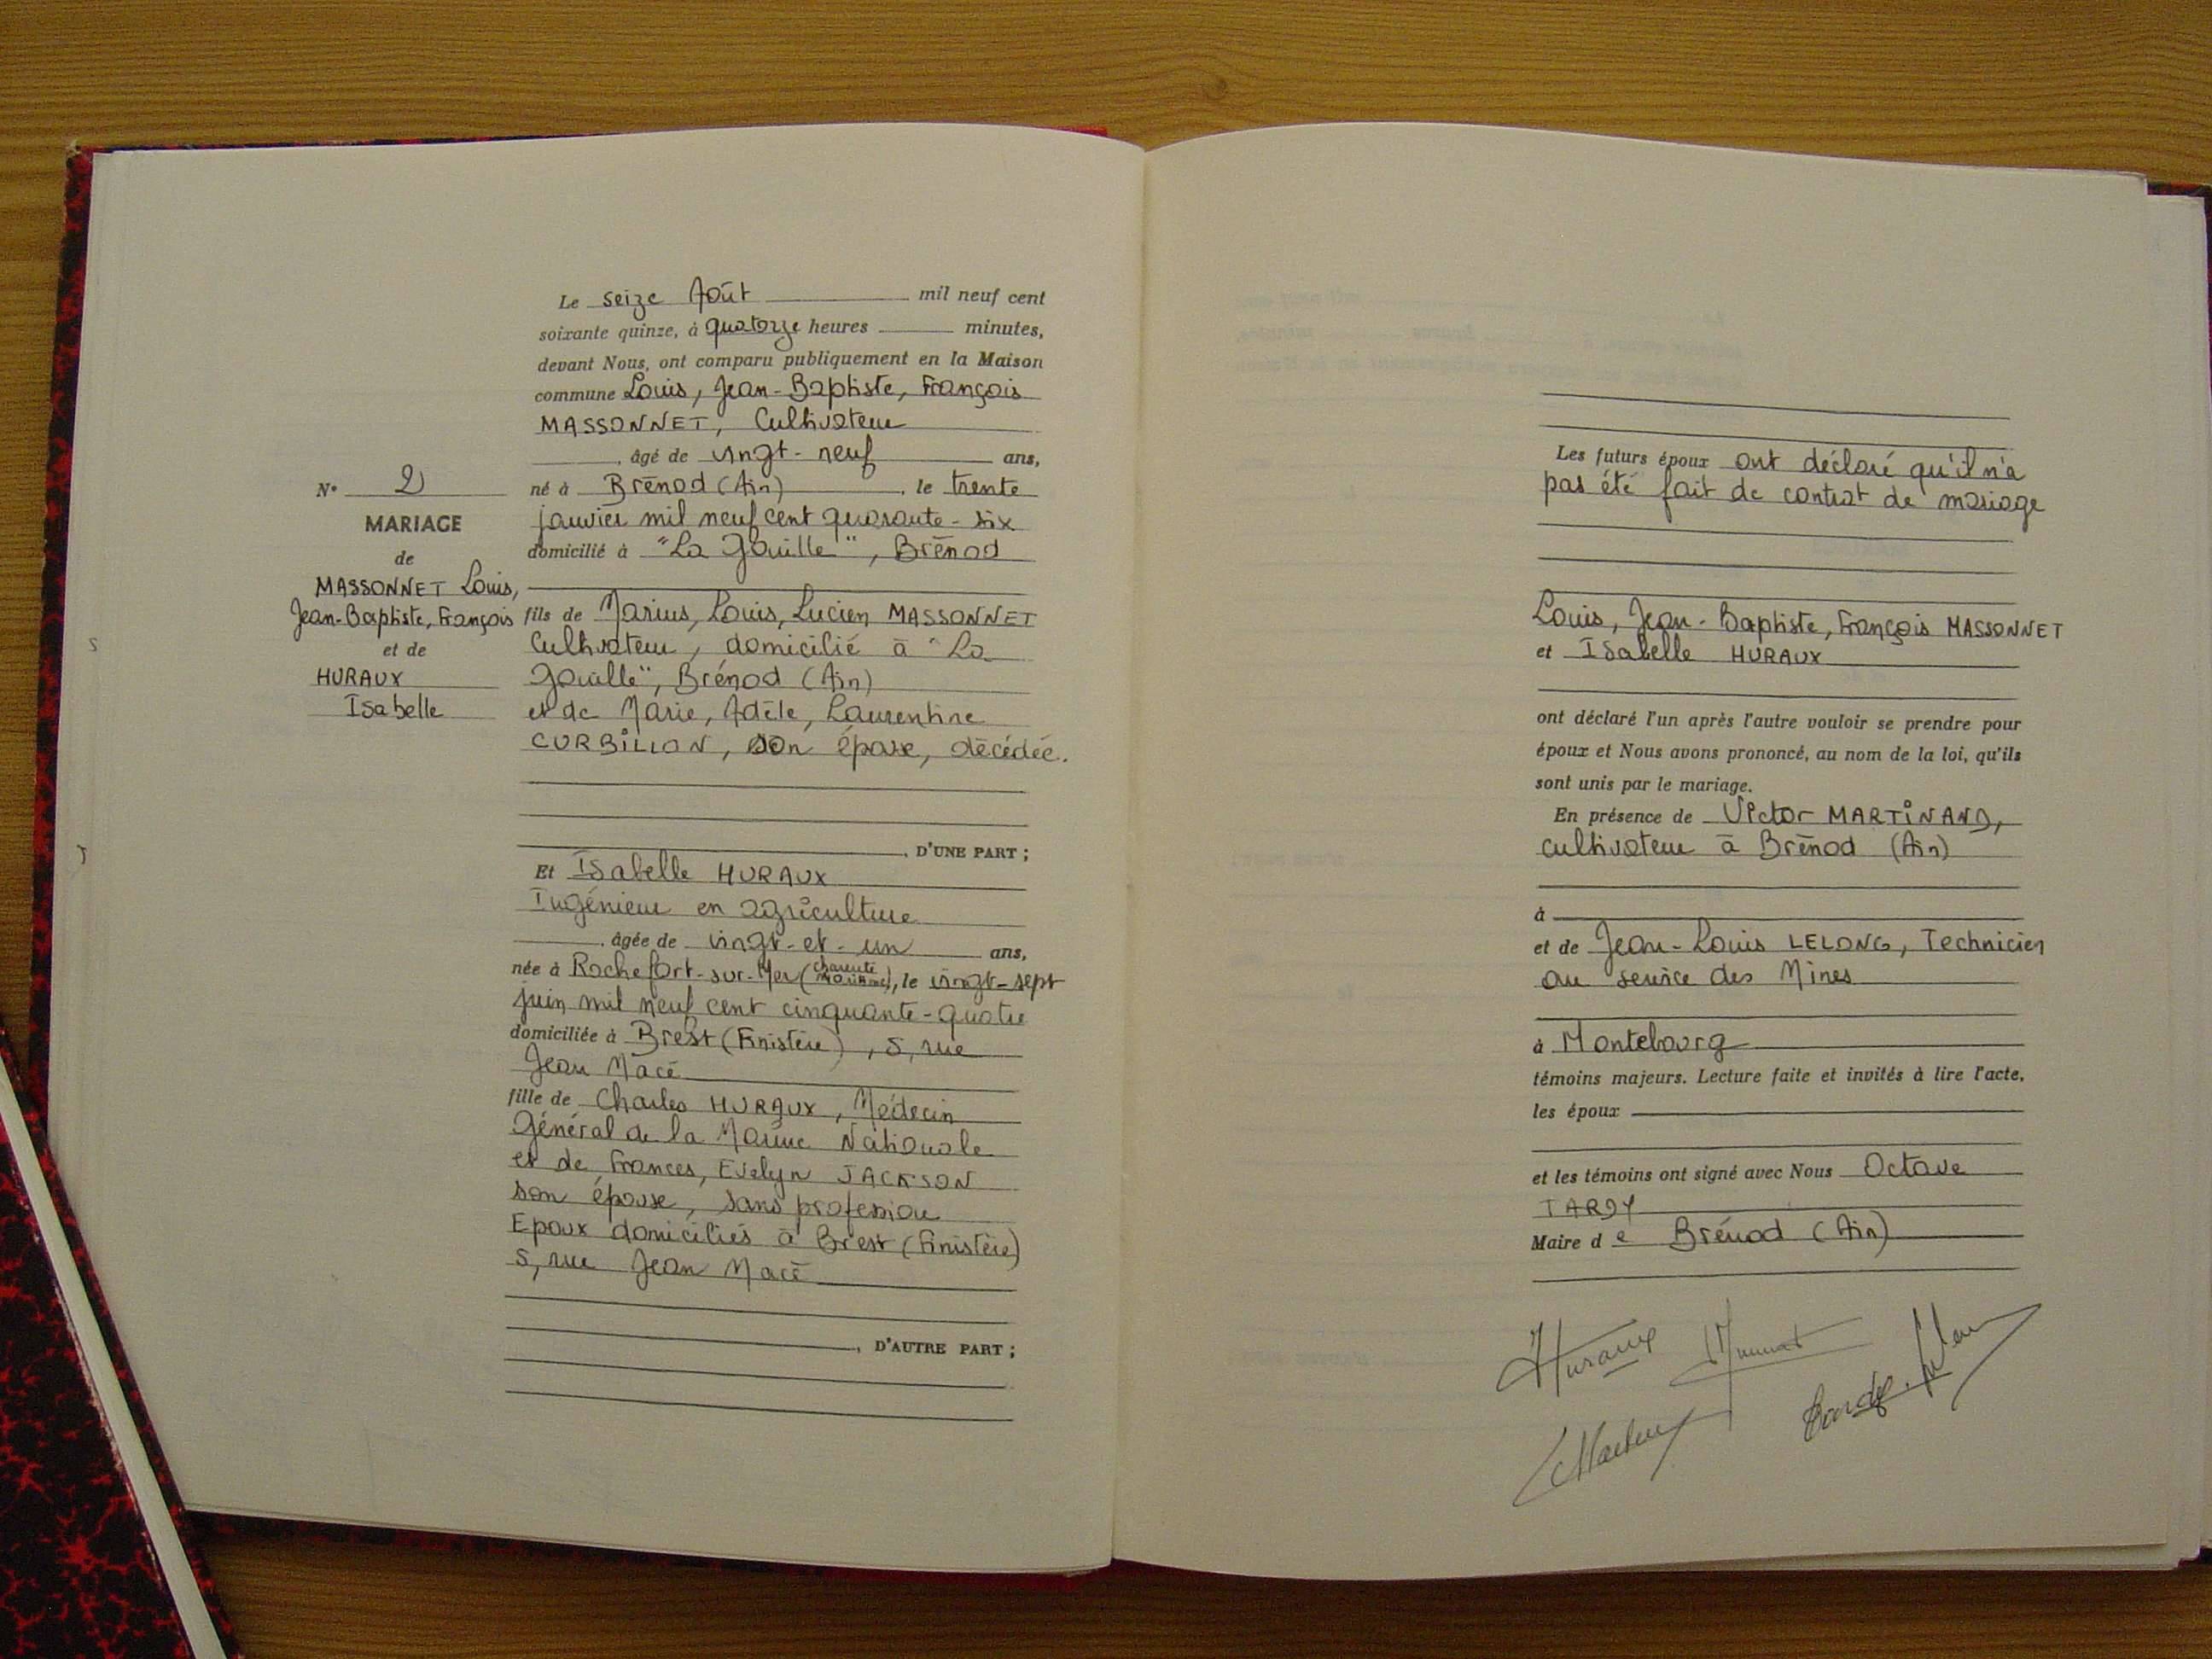 N° 2
MARIAGE
de
MASSONNET Louis,
Jean-Baptiste, François
et de
HURAUX
Isabelle
Le seize Août mil neuf cent
soixante quinze, à quatorze heures minutes,
devant Nous, ont comparu publiquement en la Maison
commune Louis, Jean-Baptiste, François
MASSONNET, Cultivateur
, âgé de vingt-neuf ans,
né à Brénod (Ain), le trente
janvier mil neuf cent quarante-six
domicilié à "La Gouille", Brénod
fils de Marius, Louis, Lucien MASSONNET
Cultivateur, domicilié à "La
Gouille", Brénod (Ain)
et de Marie, Adèle, Laurentine
CURBILLON, son épouse, décédée.
, D'UNE PART ;
Et Isabelle HURAUX
Ingénieur en agriculture
, âgée de vingt-et-un ans,
née à Rochefort-sur-Mer (Charente Maritime), le vingt-sept
juin mil neuf cent cinquante-quatre
domiciliée à Brest (Finistère), 5, rue
Jean Macé
fille de Charles HURAUX, Médecin
Général de la Marine Nationale
et de Frances, Evelyn JACKSON
son épouse, sans profession
Epoux domiciliés à Brest (Finistère)
5, rue Jean Macé
, D'AUTRE PART ;
Les futurs époux ont déclaré qu'il n'a
pas été fait de contrat de mariage
Louis, Jean-Baptiste, François MASSONNET
et Isabelle HURAUX
ont déclaré l'un après l'autre vouloir se prendre pour
époux et Nous avons prononcé, au nom de la loi, qu'ils
sont unis par le mariage.
En présence de Victor MARTINAND,
cultivateur à Brénod (Ain)
à
et de Jean-Louis LELONG, Technicien
au service des Mines
à Montebourg
témoins majeurs. Lecture faite et invités à lire l'acte,
les époux
et les témoins ont signé avec Nous Octave
TARDY
Maire de Brénod (Ain)
Huraux